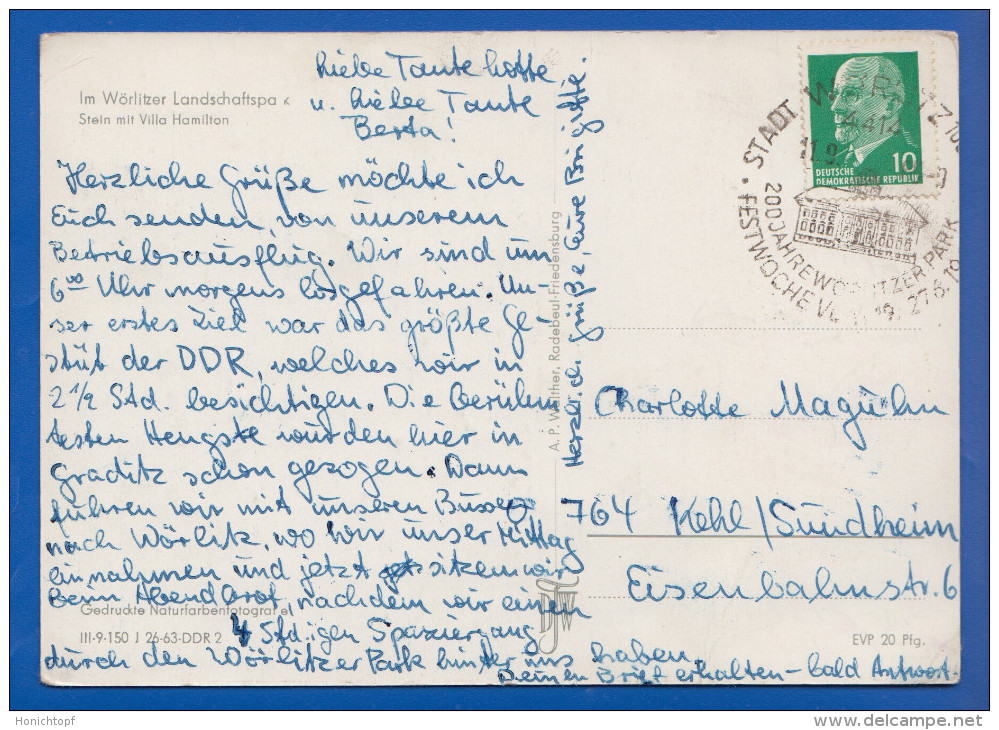 Im Wörlitzer Landschaftspa k
Stein mit Villa Hamilton
Liebe Tante Lotte,
u. Liebe Tante
Berta!
Herzliche Grüße möchte ich
Euch senden, von unserem
Betriebsausflug. Wir sind um
6⁰⁰ Uhr morgens losgefahren. Un-
ser erstes Ziel war das größte Ge-
stüt der DDR, welches wir in
2 1/2 Std. besichtigen. Die berühm
testen Hengste wurden hier in
Graditz schon gezogen. Dann
führen wir mit unseren Bussen
nach Wörlitz, wo wir unser Mittag
einnahmen und jetzt sitzen wir
beim Abendbrot, nachdem wir einen
4 Std.igen Spaziergang
durch den Wörlitzer Park hinter uns haben.
Deinen Brief erhalten - bald Antwort.
Herzliche Grüße, Eure Brigitte.
Gedruckte Naturfarbenfotografie
III-9-150 J 26-63-DDR 2
A. P. Walther, Radebeul-Friedensburg
EVP 20 Pfg.
10
DEUTSCHE
DEMOKRATISCHE REPUBLIK
STADT WÖRLITZ
4414
11.9
200 JAHRE WÖRLITZER PARK
FESTWOCHE V 19. 27.8.19
Charlotte Maguhn
764 Kehl/Sundheim
Eisenbahnstr. 6
Honichtopf
www.delcampe.net